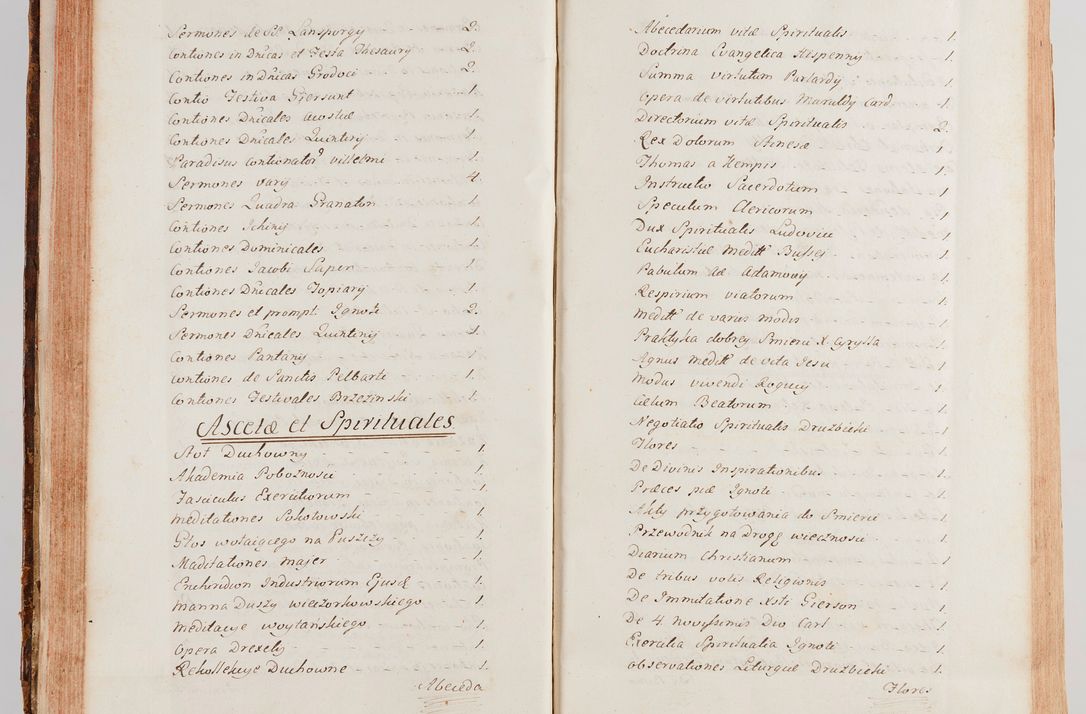 Sermones de SS. Lansporgy 2.
Contiones in Dnicas et Festa Thesaury 2.
Contiones in Dnicas Grodoci 2.
Contio Festiva Giersunt 1.
Contiones Dnicales 1.
Contiones Dnicales Quintiny 1.
Paradisus Contionator9 villelmi 1.
Sermones vary 4.
Sermones Quadra Granaton 1.
Contiones Ichiny 1.
Contiones Dominicales 1.
Contiones Jacobi Super 1.
Contiones Dnicales Topiary 1.
Sermones et prompt. Ignoti 2.
Sermones Dnicales Quintiny 1.
Contiones Pantany 1.
Contiones de Sanctis Pelbarti 1.
Contiones Festivales Brzezinski 1.
Ascetæ et Spirituales
Stoł Duchowny 1.
Akademia Pobożnosci 1.
Fasciculus Exercitiorum 1.
Meditationes Sokołowski 1.
Głos wołaiącego na Puszczy 1.
Maditationes majer 1.
Enchiridion Industriarum Ejusd 1.
Manna Duszy wieczorkowskiego 1.
Meditacye woytańskiego 1.
Opera Drexely 1.
Rekollekcye Duchowne 1.
Abeceda
Abecedarium vitæ Spiritualis 1.
Doctrina Evangelica Hispenny 1.
Summa virtutum Parlardy 1.
Opera de virtutibus Maruldy Card. 1.
Directorium vitæ Spiritualis 2.
Rex Dolorum 1
Thomas a Kempis 1.
Instructio Sacerdotum 1
Speculum Clericorum 1
Dux Spiritualis Ludovici 1
Eucharistiæ Meditt Bussej 1
Pabulum Adamowy 1
Respirium viatorum 1
Meditt de varus modis 1
Praktyka dobrey Smierci X. Cyrylla 1
Agnus Meditt de vita Jesu 1.
Modus vivendi Roguij 1.
Cœlum Beatorum 1.
Negotiatio Spiritualis Druzbicki 1.
Flores 1.
De Divinis Inspirationibus 1.
Præces piæ Ignoti 1.
Akty przygotowania do Smierci 1.
Przewodnik na Drogę wieczności 1.
Diarium Christianum 1.
De tribus votis Religionis 1.
De Immitatione Xsti Gierson 1.
De 4 novissimis Dio Carl 1.
Exercitia Spiritualia Ignoti 1.
Observationes Liturgiæ Druzbicki 1.
Flores